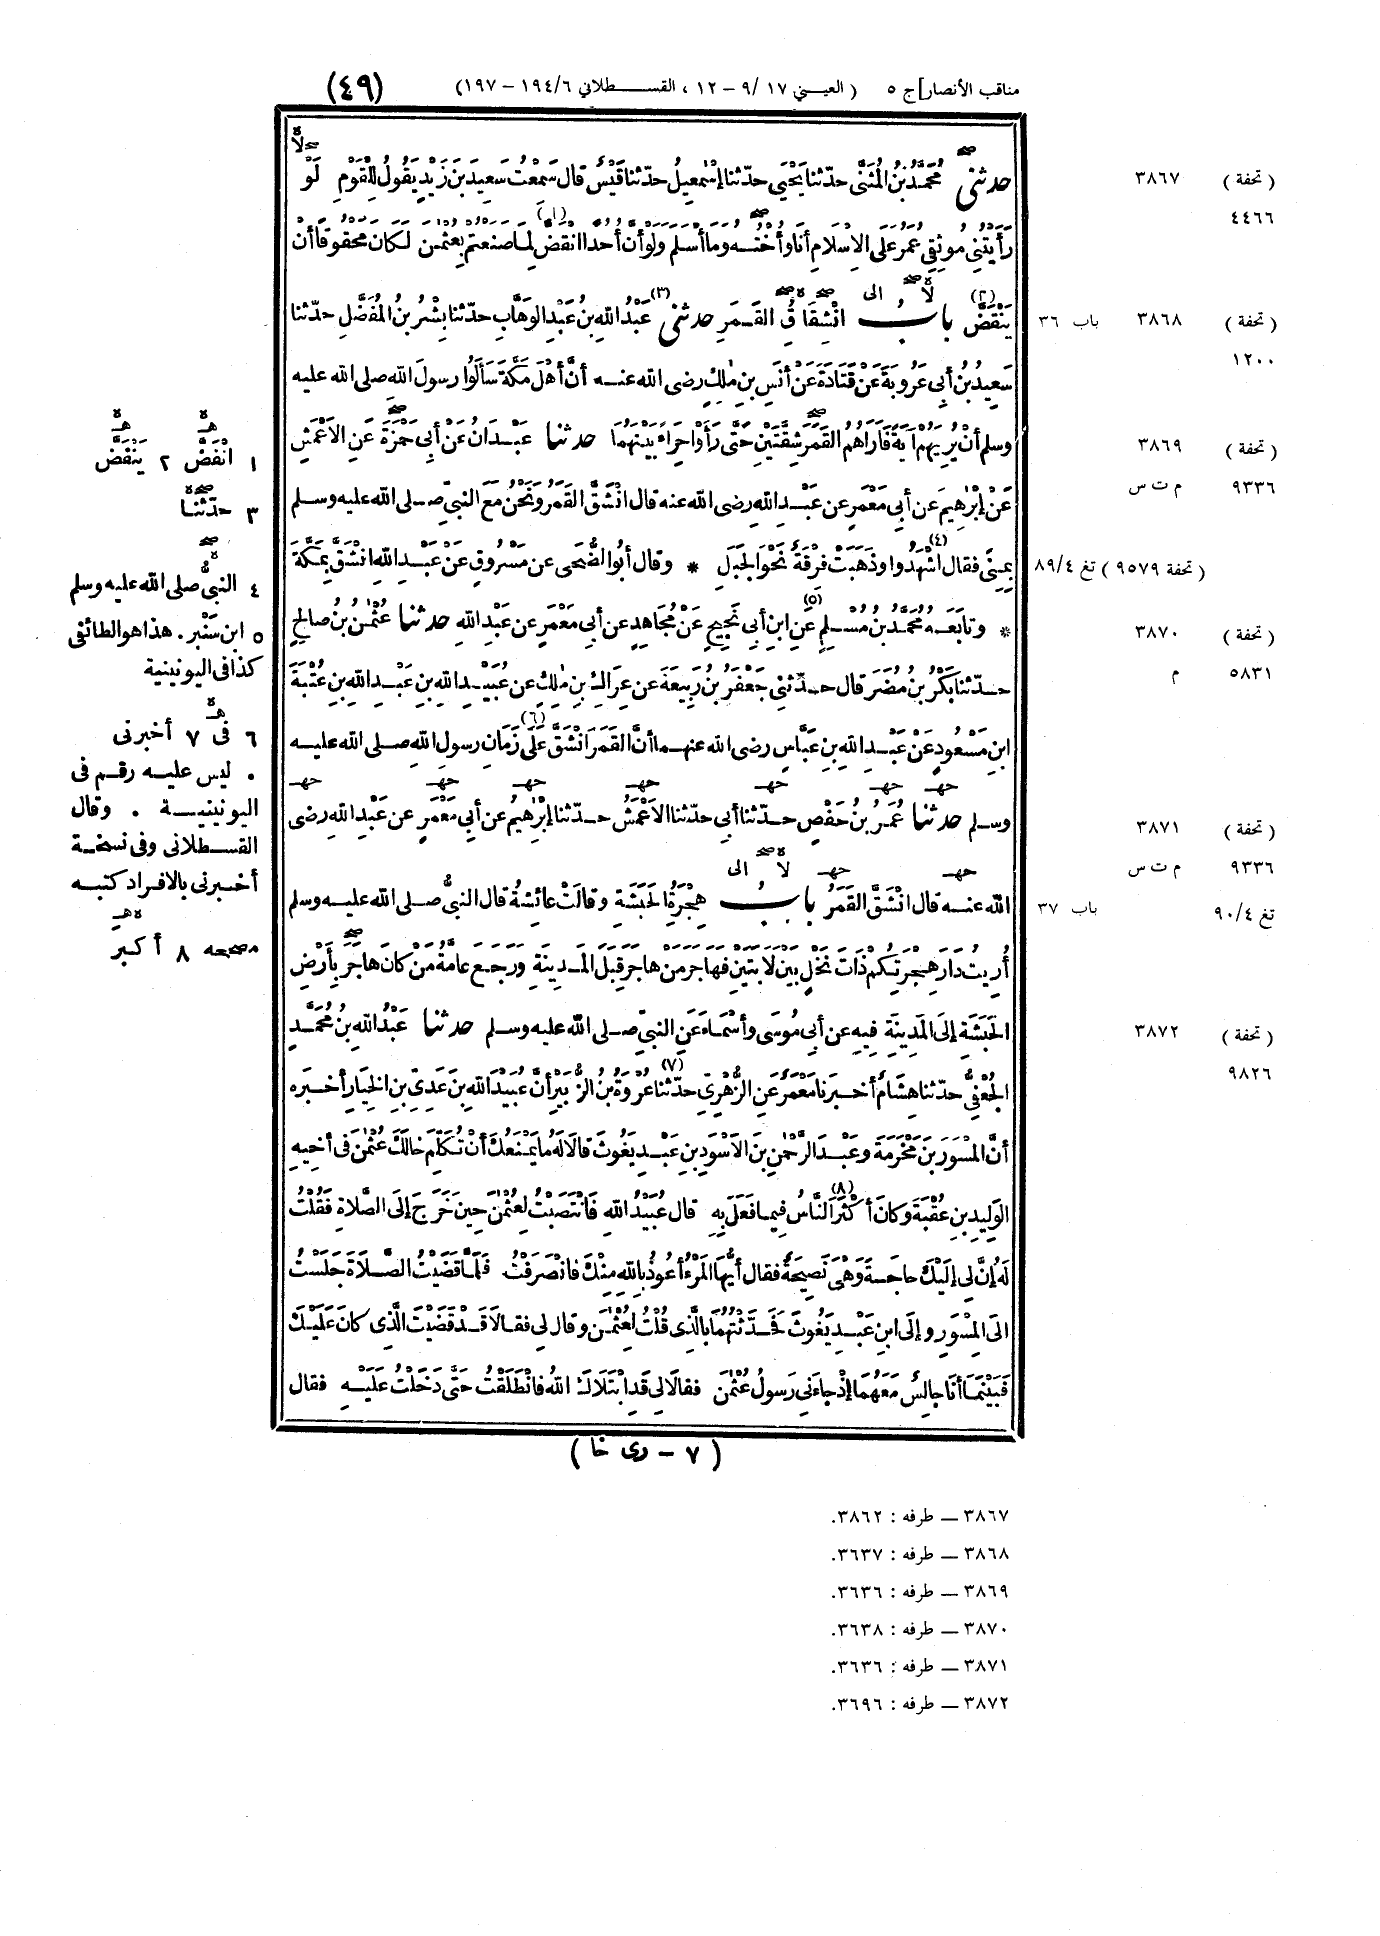 مناقب الأنصار] ج ٥ (العيني ١٧/ ٩ - ١٢ ، القسطلاني ١٩٤/٦ - ١٩٧) (٤٩)
حدثنى مُحَمَّدُ بْنُ الْمُثَنَّى حدّثنا يَحْيَى حدّثنا إِسْمٰعِيلُ حدّثنا قَيْسٌ قال سَمِعْتُ سَعِيدَ بْنَ زَيْدٍ يَقُولُ لِلْقَوْمِ لَوْ
رَأَيْتُنِى مُوثِقِى عُمَرُ عَلَى الْإِسْلَامِ أَنَا وَأُخْتُهُ وَمَا أَسْلَمَ وَلَوْ أَنَّ أُحُدًا انْقَضَّ (١) لِمَا صَنَعْتُمْ بِعُثْمٰنَ لَكَانَ مَحْقُوقًا أَنْ
يَنْقَضَّ (٢) بابُ انْشِقَاقُ الْقَمَرِ حدثنى (٣) عَبْدُ اللهِ بْنُ عَبْدِ الْوَهَّابِ حدّثنا بِشْرُ بْنُ الْمُفَضَّلِ حدّثنا
سَعِيدُ بْنُ أَبِى عَرُوبَةَ عَنْ قَتَادَةَ عَنْ أَنَسِ بْنِ مٰلِكٍ رضى الله عنه أَنَّ أَهْلَ مَكَّةَ سَأَلُوا رسولَ اللهِ صلى الله عليه
وسلم أَنْ يُرِيَهُمْ آيَةً فَأَرَاهُمُ الْقَمَرَ شِقَّتَيْنِ حَتَّى رَأَوْا حِرَاءً بَيْنَهُمَا حدثنا عَبْدَانُ عَنْ أَبِى حَمْزَةَ عَنِ الْأَعْمَشِ
عَنْ إِبْرٰهِيمَ عن أَبِى مَعْمَرٍ عن عَبْدِ اللهِ رضى الله عنه قال انْشَقَّ الْقَمَرُ وَنَحْنُ مَعَ النبىّ صلى الله عليه وسلم
بِمِنًى فقال اشْهَدُوا (٤) وَذَهَبَتْ فِرْقَةٌ نَحْوَ الْجَبَلِ * وقال أَبُو الضُّحَى عن مَسْرُوقٍ عَنْ عَبْدِ اللهِ انْشَقَّ بِمَكَّةَ
* وَتَابَعَهُ مُحَمَّدُ بْنُ مُسْلِمٍ (٥) عَنِ ابْنِ أَبِى نَجِيحٍ عَنْ مُجَاهِدٍ عن أَبِى مَعْمَرٍ عن عَبْدِ اللهِ حدثنا عُثْمٰنُ بْنُ صَالِحٍ
حدّثنا بَكْرُ بْنُ مُضَرَ قال حدّثنى جَعْفَرُ بْنُ رَبِيعَةَ عن عِرَاكِ بْنِ مٰلِكٍ عن عُبَيْدِ اللهِ بْنِ عَبْدِ اللهِ بْنِ عُتْبَةَ
ابْنِ مَسْعُودٍ عَنْ عَبْدِ اللهِ بْنِ عَبَّاسٍ رضى الله عنهما أَنَّ الْقَمَرَ انْشَقَّ عَلَى (٦) زَمَانِ رسولِ اللهِ صلى الله عليه
وسلم حدثنا عُمَرُ بْنُ حَفْصٍ حدّثنا أَبِى حدّثنا الْأَعْمَشُ حدّثنا إِبْرٰهِيمُ عن أَبِى مَعْمَرٍ عن عَبْدِ اللهِ رضى
الله عنه قال انْشَقَّ الْقَمَرُ بابُ هِجْرَةُ الْحَبَشَةِ وقالَتْ عائِشَةُ قال النبىُّ صلى الله عليه وسلم
أُرِيتُ دَارَ هِجْرَتِكُمْ ذَاتَ نَخْلٍ بَيْنَ لَابَتَيْنِ فَهَاجَرَ مَنْ هَاجَرَ قِبَلَ الْمَدِينَةِ وَرَجَعَ عامَّةُ مَنْ كانَ هاجَرَ بِأَرْضِ
الْحَبَشَةِ إِلَى الْمَدِينَةِ فِيهِ عن أَبِى مُوسَى وأَسْمَاءَ عَنِ النبىّ صلى الله عليه وسلم حدثنا عَبْدُ اللهِ بْنُ مُحَمَّدٍ
الْجُعْفِىُّ حدّثنا هِشَامٌ أَخْبَرَنا مَعْمَرٌ عَنِ الزُّهْرِىّ حدّثنا (٧) عُرْوَةُ بْنُ الزُّبَيْرِ أَنَّ عُبَيْدَ اللهِ بْنَ عَدِىِّ بْنِ الْخِيَارِ أَخْبَرَهُ
أَنَّ الْمِسْوَرَ بْنَ مَخْرَمَةَ وعَبْدَ الرَّحْمٰنِ بْنَ الْأَسْوَدِ بْنِ عَبْدِ يَغُوثَ قالَا لَهُ ما يَمْنَعُكَ أَنْ تُكَلِّمَ خالَكَ عُثْمٰنَ فى أَخِيهِ
الْوَلِيدِ بْنِ عُقْبَةَ وكانَ أَكْثَرَ (٨) النَّاسُ فِيما فَعَلَ بِهِ قال عُبَيْدُ اللهِ فَانْتَصَبْتُ لِعُثْمٰنَ حِينَ خَرَجَ إِلَى الصَّلَاةِ فَقُلْتُ
لَهُ إِنَّ لِى إِلَيْكَ حاجَةً وَهْىَ نَصِيحَةٌ فقال أَيُّهَا الْمَرْءُ أَعُوذُ بِاللهِ مِنْكَ فَانْصَرَفْتُ فَلَمَّا قَضَيْتُ الصَّلَاةَ جَلَسْتُ
إِلَى الْمِسْوَرِ وإِلَى ابْنِ عَبْدِ يَغُوثَ فَحَدَّثْتُهُمَا بِالَّذِى قُلْتُ لِعُثْمٰنَ وقال لِى فقالَا قَدْ قَضَيْتَ الَّذِى كانَ عَلَيْكَ
فَبَيْنَمَا أَنَا جالِسٌ مَعَهُمَا إِذْ جاءَنِى رَسُولُ عُثْمٰنَ فقالَا لِى قَدِ ابْتَلَاكَ اللهُ فَانْطَلَقْتُ حَتَّى دَخَلْتُ عَلَيْهِ فقال
(٧ - رى خا)
(تحفة) ٣٨٦٧
٤٤٦٦
(تحفة) ٣٨٦٨ باب ٣٦
١٢٠٠
(تحفة) ٣٨٦٩
٩٣٣٦ م ت س
(تحفة ٩٥٧٩) تغ ٨٩/٤
(تحفة) ٣٨٧٠
٥٨٣١ م
(تحفة) ٣٨٧١
٩٣٣٦ م ت س
تغ ٩٠/٤ باب ٣٧
(تحفة) ٣٨٧٢
٩٨٢٦
١ انْفَضَّ ٢ يَنْفَضَّ
٣ حدّثنا
٤ النبىُّ صلى الله عليه وسلم
٥ ابن سَنْبر. هذا هو الطائفى
كذا فى اليونينية
٦ فى ٧ أخبرنى
. ليس عليه رقم فى
اليونينية . وقال
القسطلانى وفى نسخة
أخبرنى بالافراد كتبه
مصححه ٨ أكبر
٣٨٦٧ — طرفه : ٣٨٦٢.
٣٨٦٨ — طرفه : ٣٦٣٧.
٣٨٦٩ — طرفه : ٣٦٣٦.
٣٨٧٠ — طرفه : ٣٦٣٨.
٣٨٧١ — طرفه : ٣٦٣٦.
٣٨٧٢ — طرفه : ٣٦٩٦.